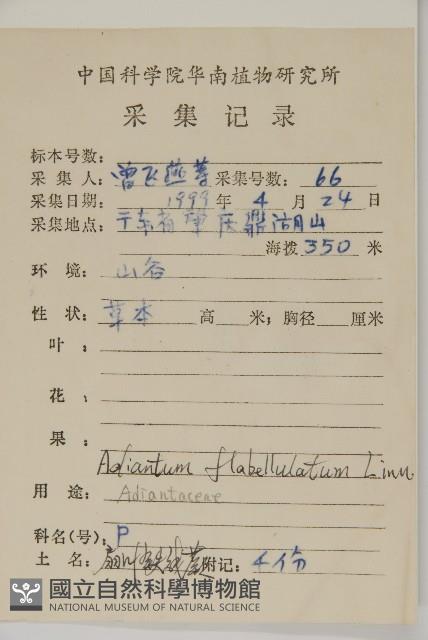 中国科学院华南植物研究所
采集记录
标本号数:
采集人: 曾飞燕等 采集号数: 66
采集日期: 1999 年 4 月 24 日
采集地点: 广东省肇庆鼎湖山
海拨 350 米
环境: 山谷
性状: 草本 高 米; 胸径 厘米
叶:
花:
果:
Adiantum flabellulatum Linn.
用途: Adiantaceae
科名(号): P
土名: 扇叶铁线蕨 附记: 4份
國立自然科學博物館
NATIONAL MUSEUM OF NATURAL SCIENCE